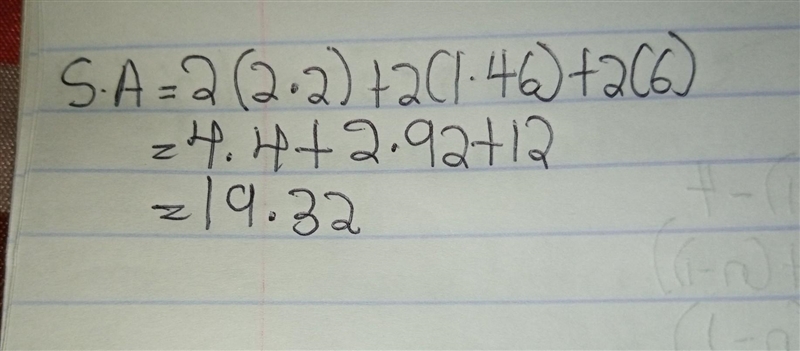 S.A = 2(2.2) + 2(1.46) + 2(6)
= 4.4 + 2.92 + 12
= 19.32